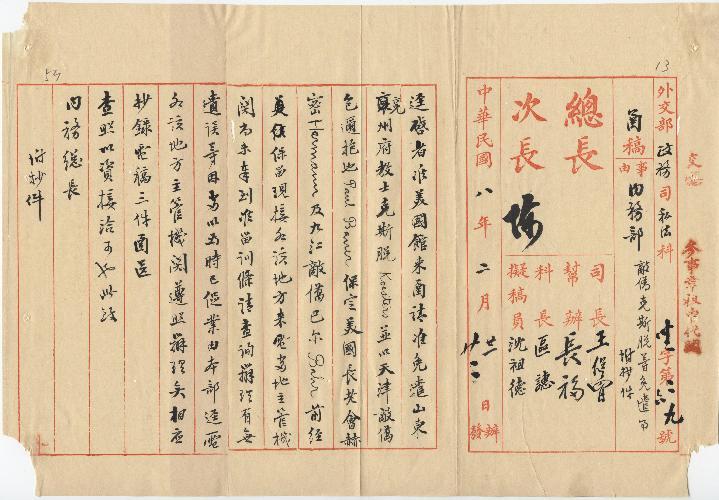 13
外交部政務司私法科
字第 九號
函稿
事由
內務部
敵僑克斯脫等免遣事
附抄件
總長
次長
司長王
幫辦長福
科長區諶
擬稿員沈祖德
中華民國八年二月廿 日辦
廿 發
逕啓者准美國館來函請准免遣山東
兗州府教士克斯脫 並以天津敵僑
包爾抱也Paul Bauer保定美國長老會赫
密Hermann及九江敵僑巴尔Bahr前經
保留現接各該地方來電當地主管機
關尚未奉到准留訓條請查詢辦理有無
遺誤等因當以為時已促業由本部逕電
各該地方主管機關遵照辦理矣相應
抄錄電稿三件函送
查照以資接洽可也此致
內務總長
附抄件
54